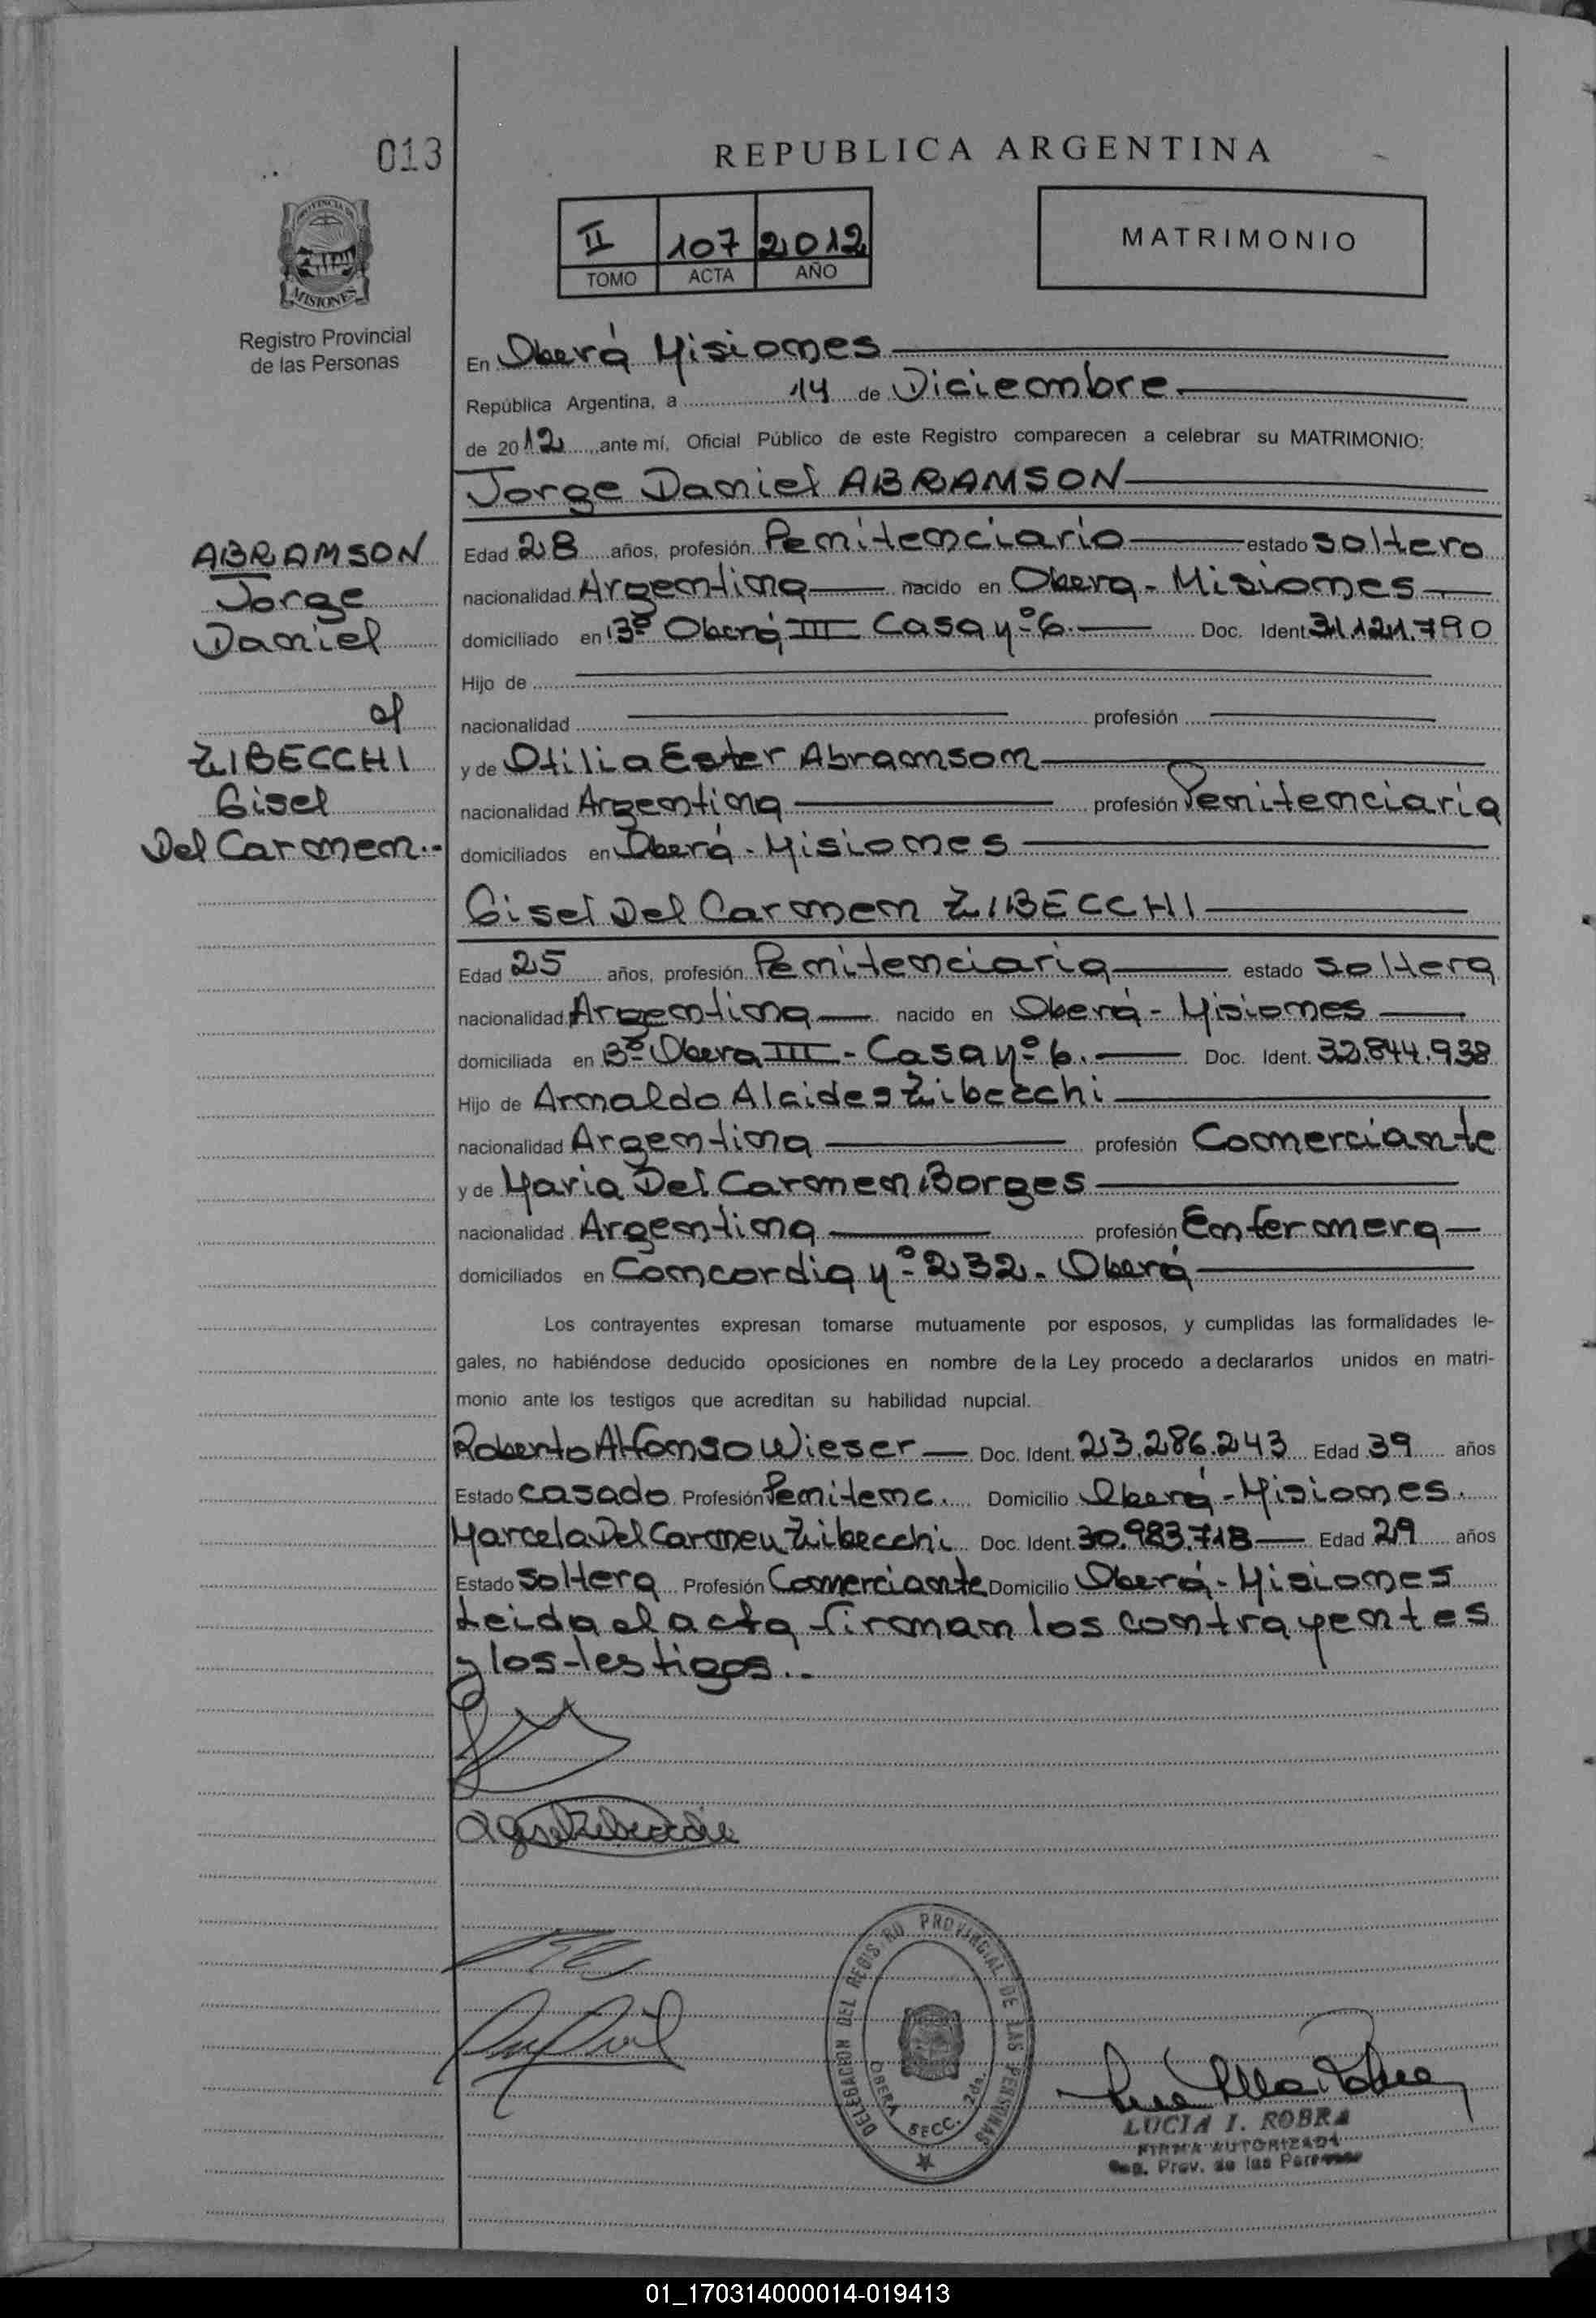 013
REPUBLICA ARGENTINA
II 107 2012
TOMO ACTA AÑO
MATRIMONIO
PROVINCIA DE
MISIONES
Registro Provincial
de las Personas
En Oberá Misiones
República Argentina, a 14 de Diciembre
de 2012 ante mí, Oficial Público de este Registro comparecen a celebrar su MATRIMONIO:
Jorge Daniel ABRAMSON
ABRAMSON
Jorge
Daniel
Edad 28 años, profesión Penitenciario estado soltero
nacionalidad Argentina nacido en Obera - Misiones
domiciliado en Bº Oberá III Casa nº 6. Doc. Ident. 31.121.790
Hijo de
nacionalidad profesión
ZIBECCHI
Gisel
Del Carmen.-
y de Otilia Ester Abramson
nacionalidad Argentina profesión Penitenciaria
domiciliados en Oberá - Misiones
Gisel Del Carmen ZIBECCHI
Edad 25 años, profesión Penitenciaria estado soltera
nacionalidad Argentina nacido en Oberá - Misiones
domiciliada en Bº Obera III - Casa nº 6. Doc. Ident. 32.844.938
Hijo de Arnaldo Alcides Zibecchi
nacionalidad Argentina profesión Comerciante
y de Maria Del Carmen Borges
nacionalidad Argentina profesión Enfermera
domiciliados en Concordia nº 232. Oberá
Los contrayentes expresan tomarse mutuamente por esposos, y cumplidas las formalidades le-
gales, no habiéndose deducido oposiciones en nombre de la Ley procedo a declararlos unidos en matri-
monio ante los testigos que acreditan su habilidad nupcial.
Roberto Alfonso Wieser Doc. Ident. 23.286.243 Edad 39 años
Estado casado Profesión Penitenc. Domicilio Oberá - Misiones.
Marcela Del Carmen Zibecchi Doc. Ident. 30.983.718 Edad 29 años
Estado soltera Profesión Comerciante Domicilio Oberá - Misiones
Leida el acta firman los contrayentes
y los testigos.-
DELEGACION DEL REGISTRO PROVINCIAL DE LAS PERSONAS
OBERA SECC. 2da.
LUCIA I. ROBRA
FIRMA AUTORIZADA
Reg. Prov. de las Personas
01_170314000014-019413